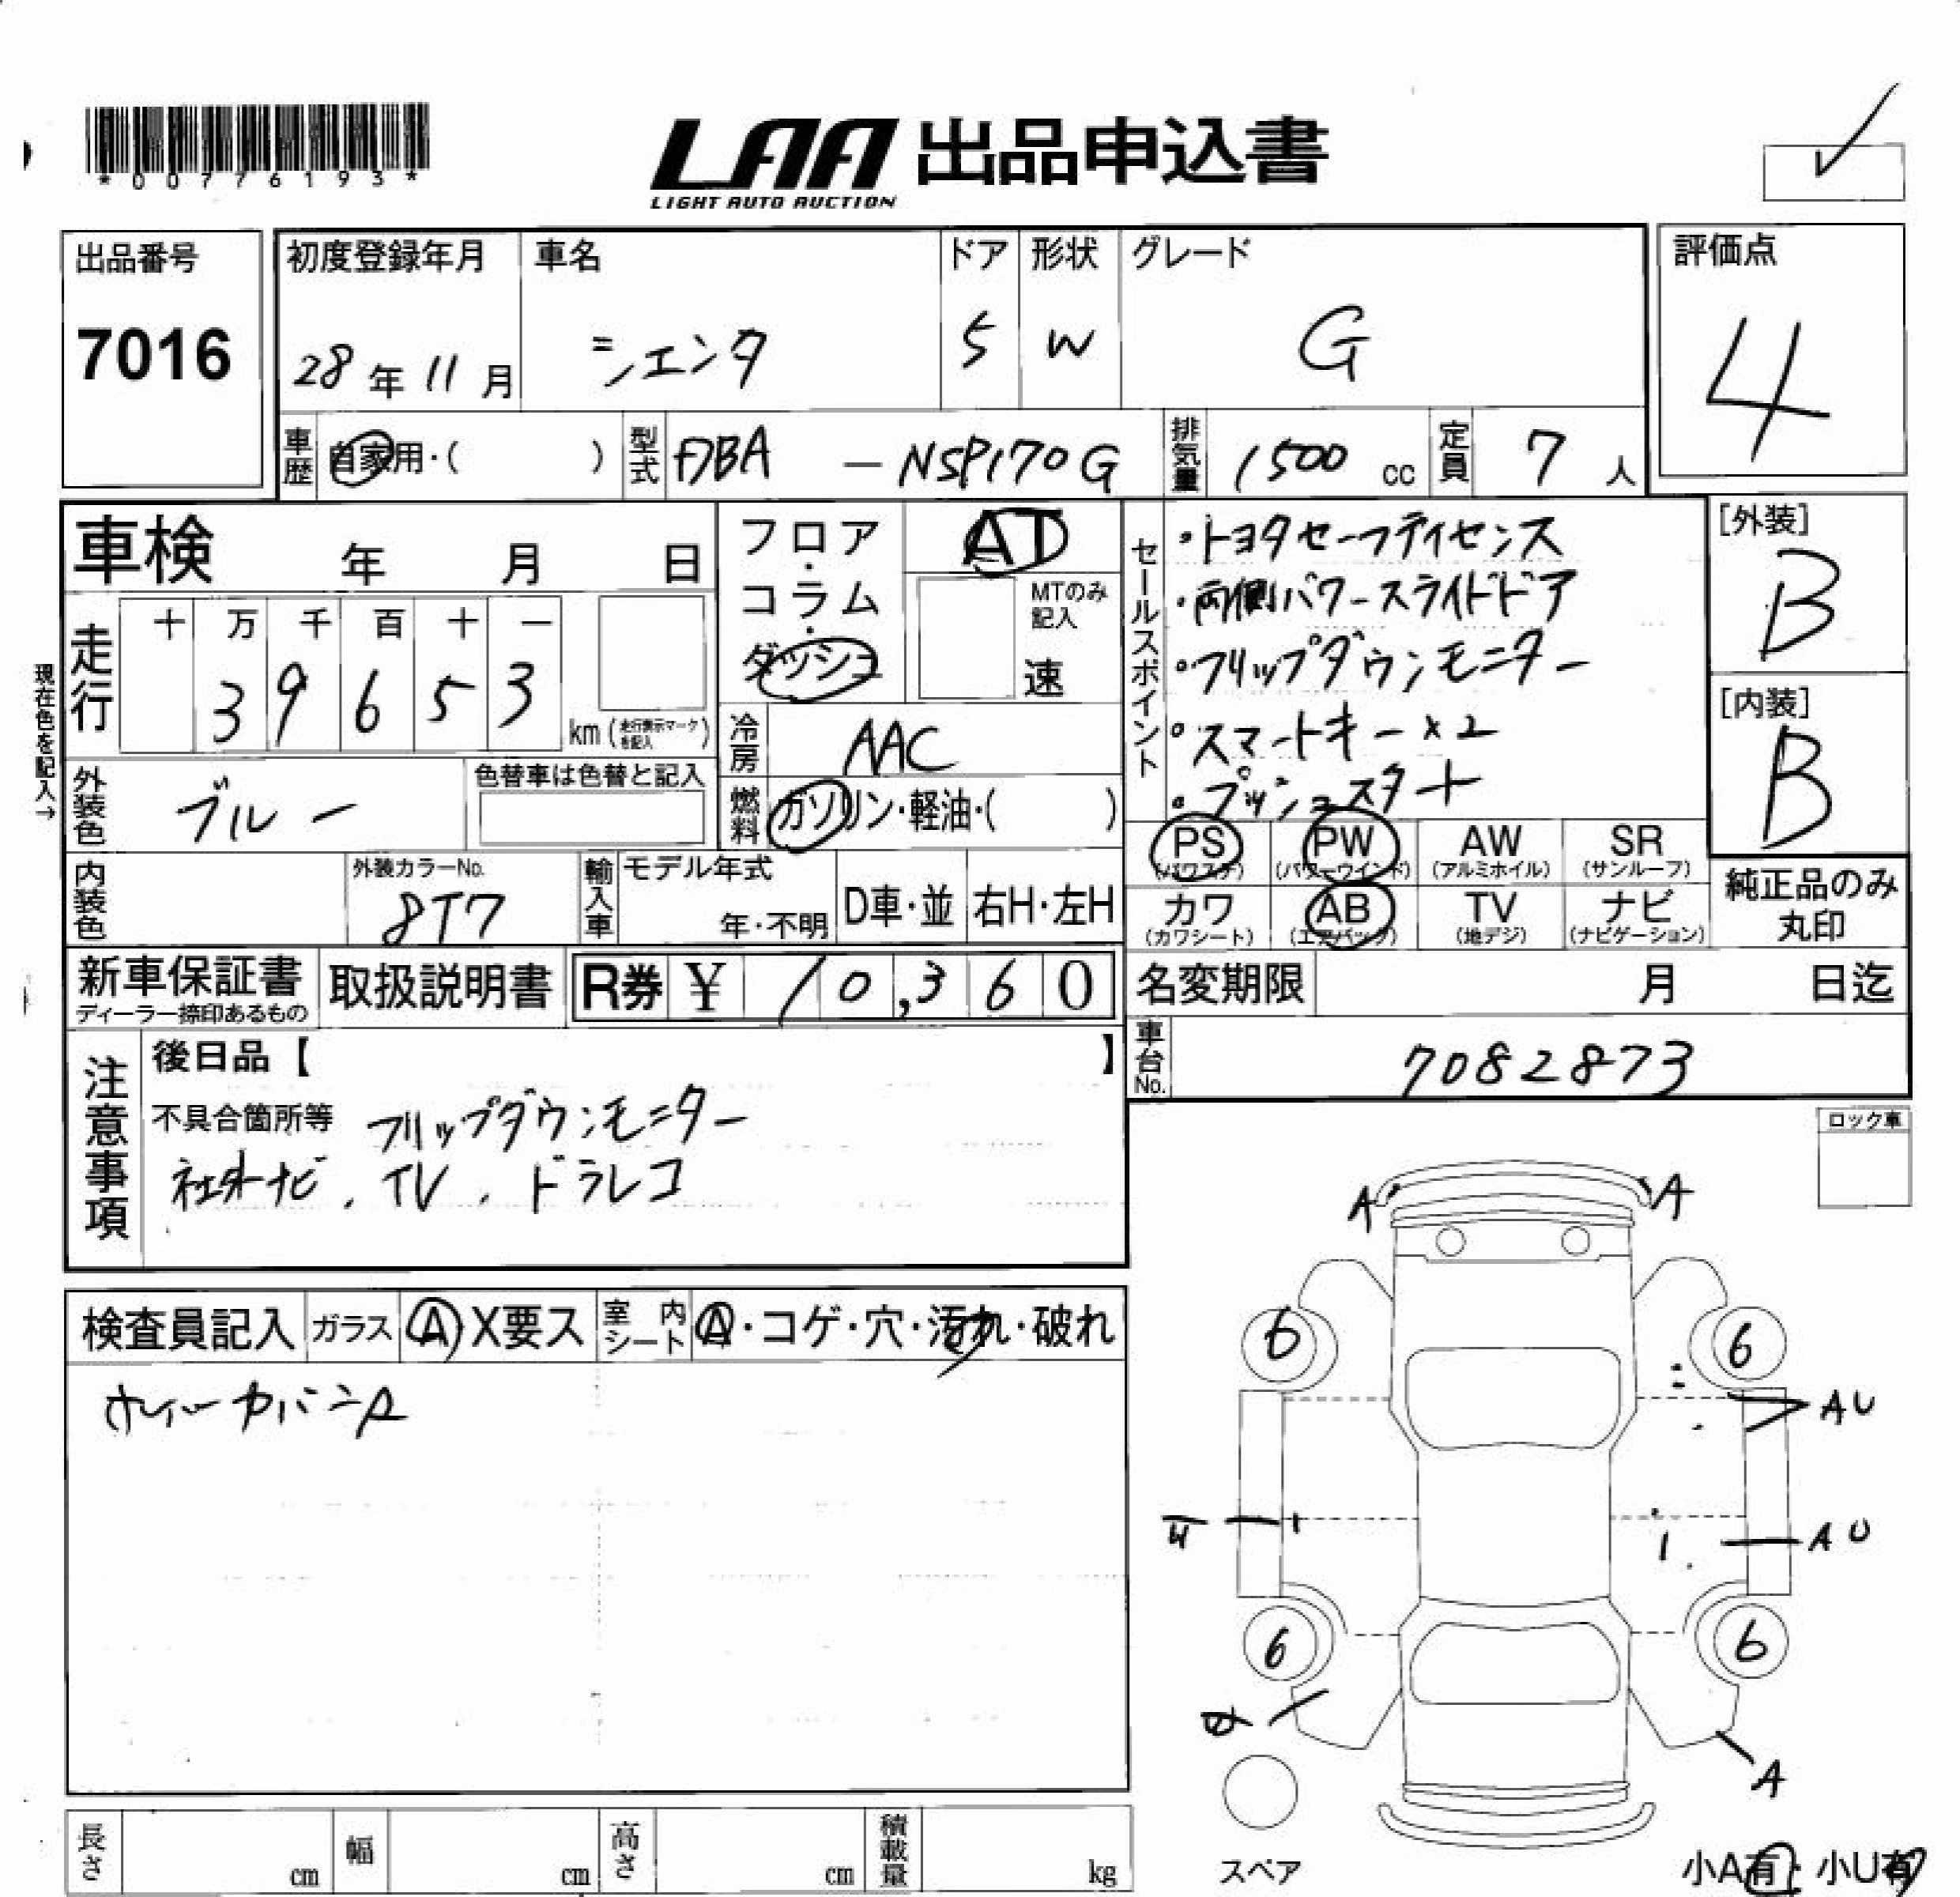 *00776193*
LAA 出品申込書
LIGHT AUTO AUCTION
出品番号
7016
初度登録年月
28年11月
車名
シエンタ
ドア
5
形状
W
グレード
G
評価点
4
車歴
自家用・( )
型式
DBA - NSP170G
排気量
1500 cc
定員
7 人
車検 年 月 日
走行
十 万 千 百 十 一
3 9 6 5 3
km (走行表示マークを記入)
現在色を記入→
フロア・コラム・ダッシュ
AT
MTのみ記入
速
冷房
AAC
燃料
ガソリン・軽油・( )
セールスポイント
・トヨタセーフティセンス
・両側パワースライドドア
・フリップダウンモニター
・スマートキー×2
・プッシュスタート
[外装]
B
[内装]
B
外装色
ブルー
色替車は色替と記入
内装色
外装カラーNo.
8T7
輸入車
モデル年式
年・不明
D車・並
右H・左H
PS (パワステ)
PW (パワーウインド)
AW (アルミホイル)
SR (サンルーフ)
カワ (カワシート)
AB (エアバック)
TV (地デジ)
ナビ (ナビゲーション)
純正品のみ
丸印
新車保証書
ディーラー捺印あるもの
取扱説明書
R券 ¥ 10,360
名変期限 月 日迄
車台No.
7082873
注意事項
後日品【 】
不具合箇所等 フリップダウンモニター
社外ナビ、TV、ドラレコ
ロック車
検査員記入
ガラス
A X要ス
室内シート
A・コゲ・穴・汚れ・破れ
ホイールカバーA
A A
6 6
AU
AU
6 6
A
スペア
小A有・小U有
長さ cm
幅 cm
高さ cm
積載量 kg